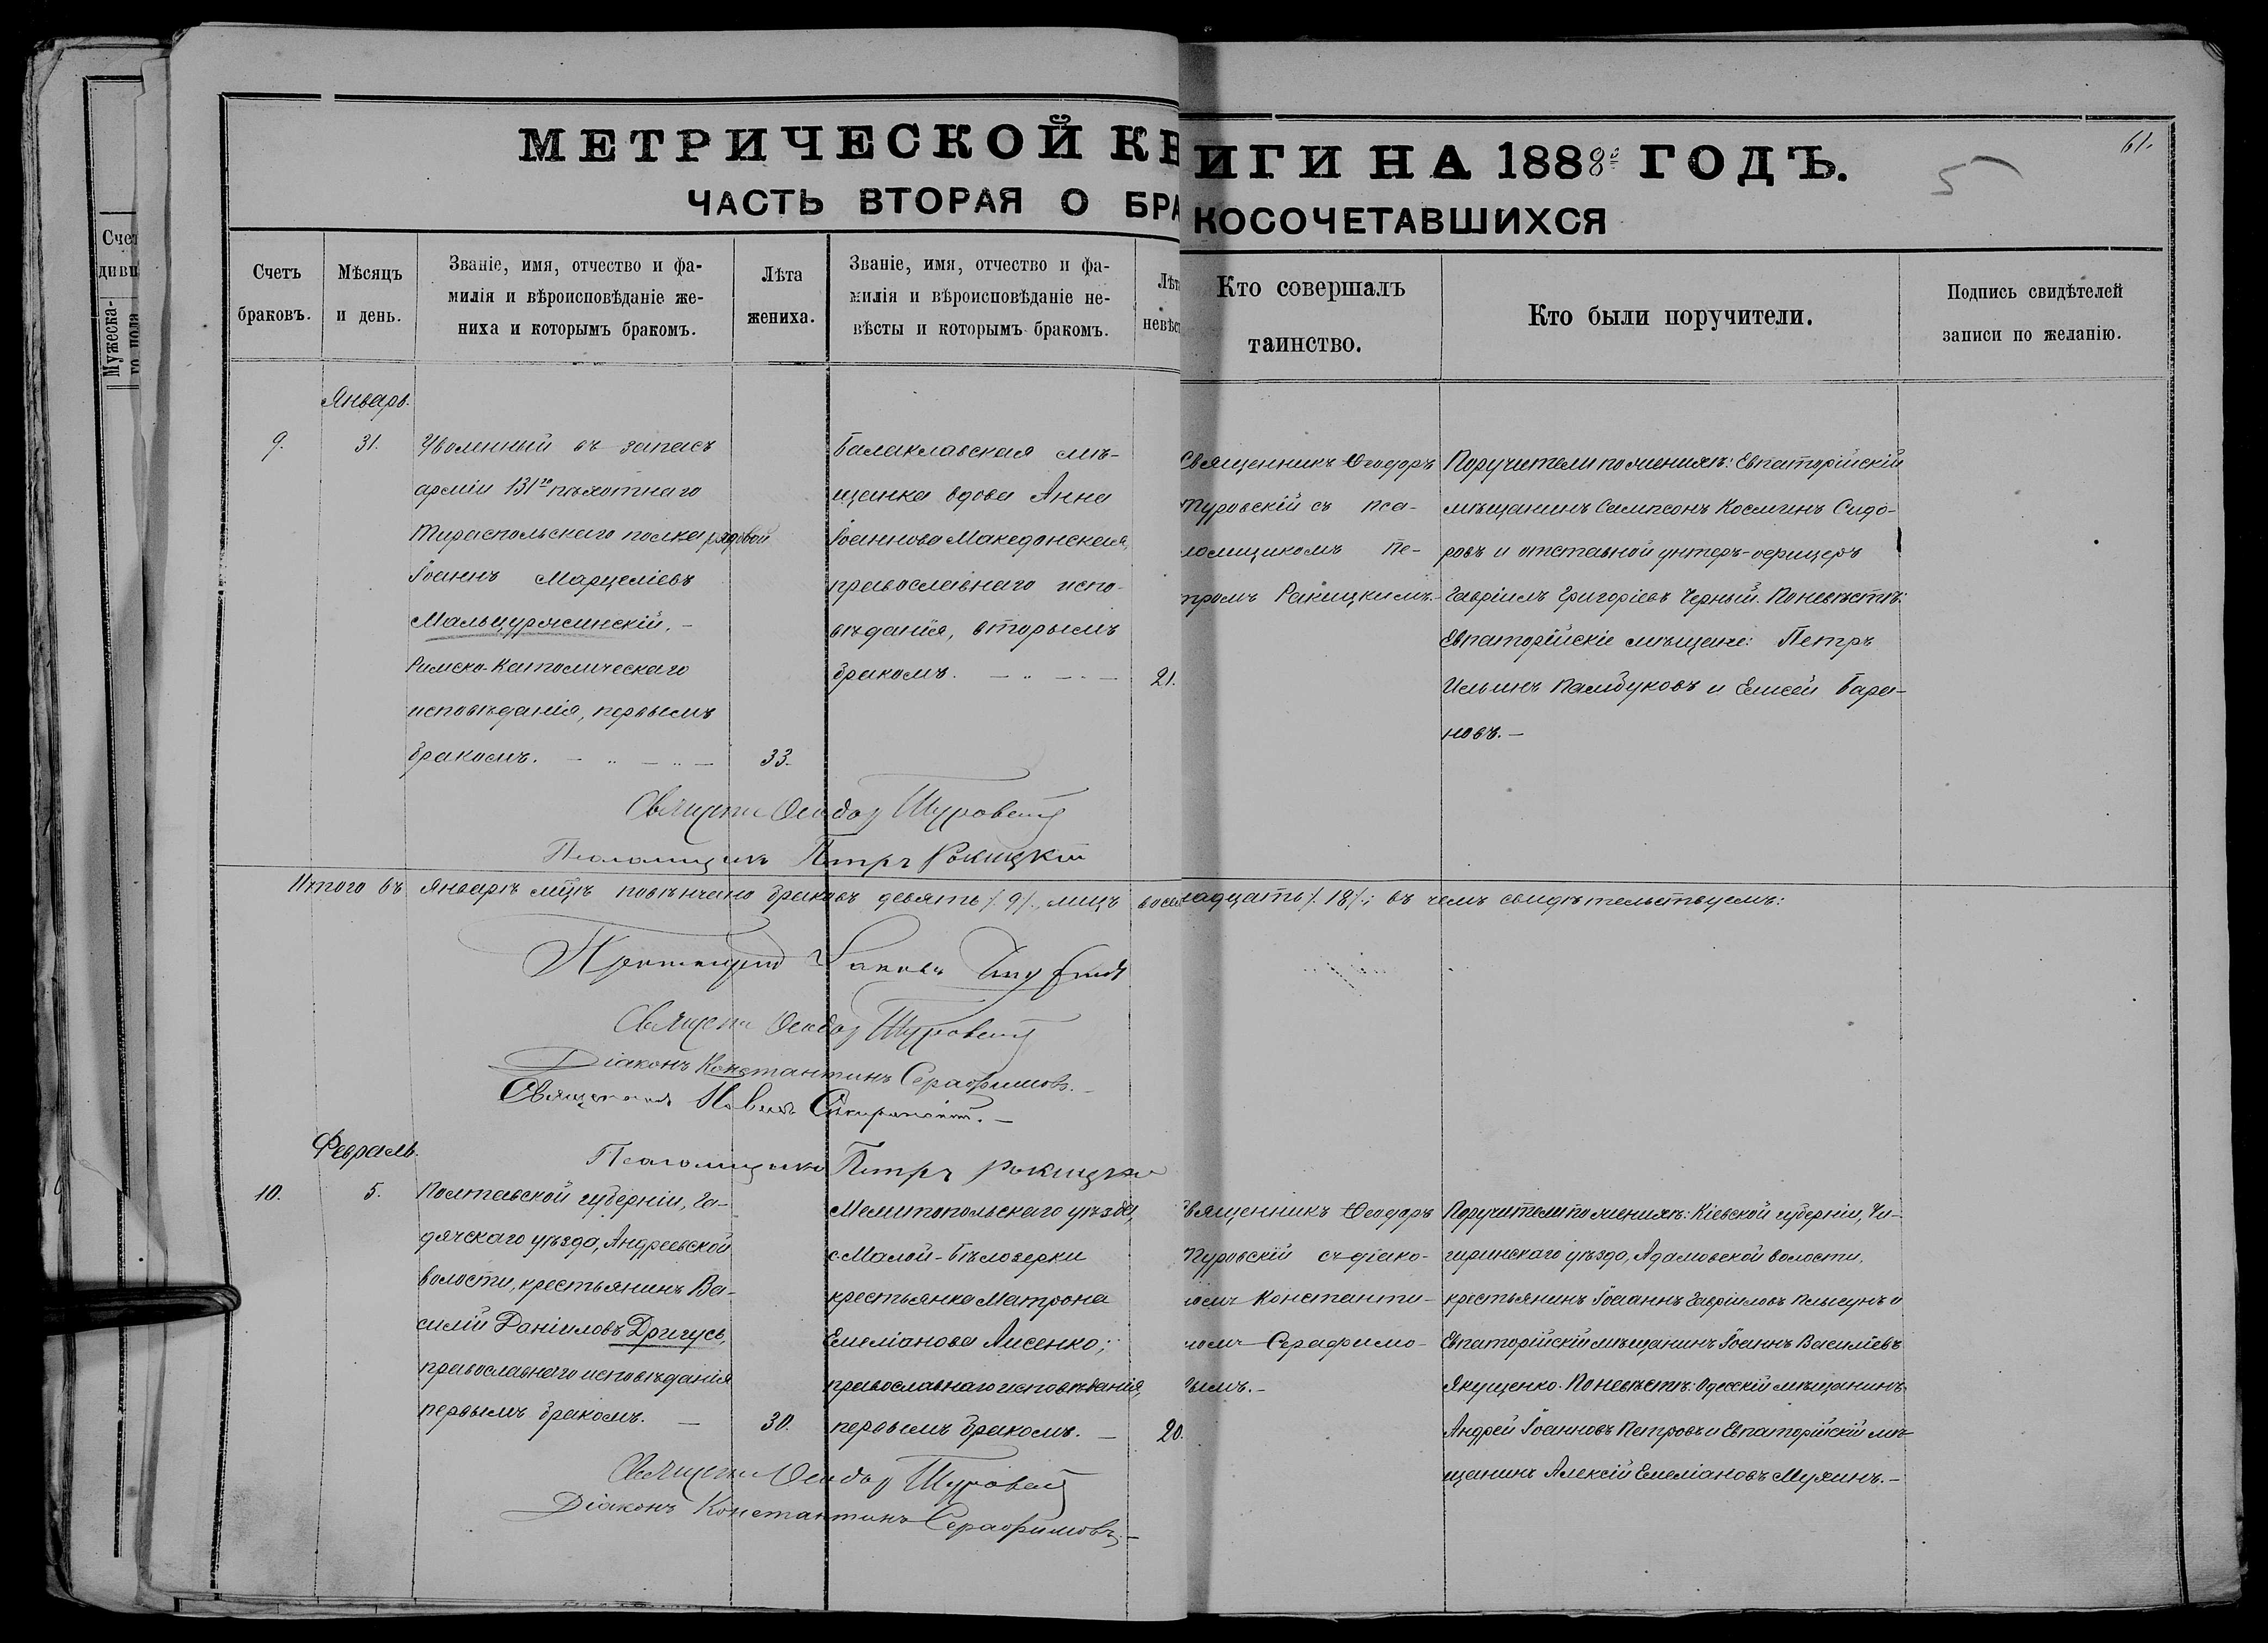 МЕТРИЧЕСКОЙ К
ИГИ НА 1888й ГОДЪ.
61.
5
ЧАСТЬ ВТОРАЯ О БРА
КОСОЧЕТАВШИХСЯ
Счетъ
браковъ.
Мѣсяцъ
и день.
Званіе, имя, отчество и фа-
милія и вѣроисповѣданіе же-
ниха и которымъ бракомъ.
Лѣта
жениха.
Званіе, имя, отчество и фа-
милія и вѣроисповѣданіе не-
вѣсты и которымъ бракомъ.
Лѣт
невѣс
Кто совершалъ
таинство.
Кто были поручители.
Подпись свидѣтелей
записи по желанію.
Январь.
9.
31.
Уволенный въ запасъ
арміи 131го пѣхотнаго
Тираспольскаго полка рядовой
Іоаннъ Марцеліевъ
Мальцужинскій, -
Римско-Католическаго
исповѣданія, первымъ
бракомъ.
33.
Балаклавская мѣ-
щанка вдова Анна
Іоаннова Македонская,
православнаго испо-
вѣданія, вторымъ
бракомъ.
21.
Священникъ Ѳеодоръ
Туровскій съ пса-
ломщикомъ Пе-
тромъ Ракицкимъ.-
Поручители по женихѣ: Евпаторійскій
мѣщанинъ Сампсонъ Косминъ Сидо-
ровъ и отставной унтеръ-офицеръ
Гавріилъ Григоріевъ Черный. По невѣстѣ:
Евпаторійскіе мѣщане: Петръ
Ильинъ Памбуковъ и Елисей Бара-
новъ.-
Священ Ѳеодор Туровскій
Псаломщикъ Петръ Рокицкій
Итого въ Январѣ мцѣ повѣнчано браковъ девять /.9/., лицъ восем
надцать /.18/.; въ чемъ свидѣтельствуемъ:
Протоіерей Іаковъ
Священ Ѳеодор Туровскій
Діаконъ Константинъ Серафимовъ.-
Священникъ Павелъ
Псаломщикъ Петръ Рокицкій
Февраль.
10.
5.
Полтавской губерніи, Га-
дячскаго уѣзда, Андреевской
волости, крестьянинъ Ва-
силій Даніиловъ Дригусь,
православнаго исповѣданія
первымъ бракомъ. -
30.
Мелитопольскаго уѣзда,
с. Малой-Бѣлозерки
крестьянка Матрона
Емеліанова Лисенко;
православнаго исповѣданія,
первымъ бракомъ. -
20.
Священникъ Ѳеодоръ
Туровскій съ діако-
номъ Константи-
номъ Серафимо-
вымъ.-
Поручители по женихѣ: Кіевской губерніи, Чи-
гиринскаго уѣзда, Адамовской волости,
крестьянинъ Іоаннъ Гавріиловъ и
Евпаторійскій мѣщанинъ Іоаннъ Василіевъ
Якущенко. По невѣстѣ: Одесскій мѣщанинъ
Андрей Іоанновъ Петровъ и Евпаторійскій мѣ-
щанинъ Алексій Емеліановъ Мужинъ.-
Священ Ѳеодор Туровскій
Діаконъ Константинъ Серафимовъ.-
Счет
диви
Мужеска-
го пола